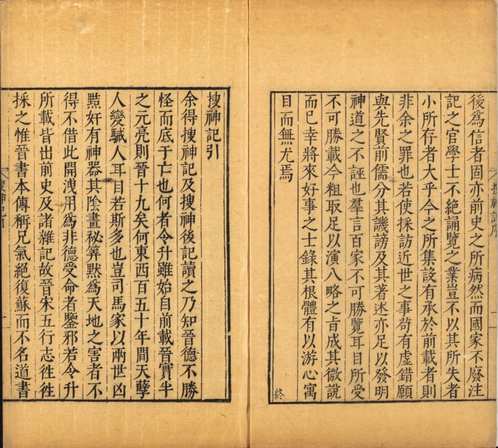 後爲信者固亦前史之所病然而國家不廢注
記之官學士不絶誦覽之業豈不以其所失者
小所存者大乎今之所集設有承於前載者則
非余之罪也若使採訪近世之事苟有虛錯願
與先賢前儒分其譏謗及其著述亦足以發明
神道之不誣也羣言百家不可勝覽耳目所受
不可勝載今粗取足以演八略之旨成其微說
而已幸將來好事之士錄其根體有以游心寓
目而無尤焉
終
搜神記引
余得搜神記及搜神後記讀之乃知晉德不勝
怪而底于亡也何者令升雖始自前載晉實半
之元亮則晉十九矣何東西百五十年間天孽
人變駴人耳目若斯多也豈司馬家以兩世凶
黠奸有神器其陰畫秘筭黙爲天地之害者不
得不借此開洩用爲非德受命者鑒邪若令升
所載皆出前史及諸雜記故晉宋五行志徃徃
採之惟晉書本傳稱兄氣絕復蘇而不名道書